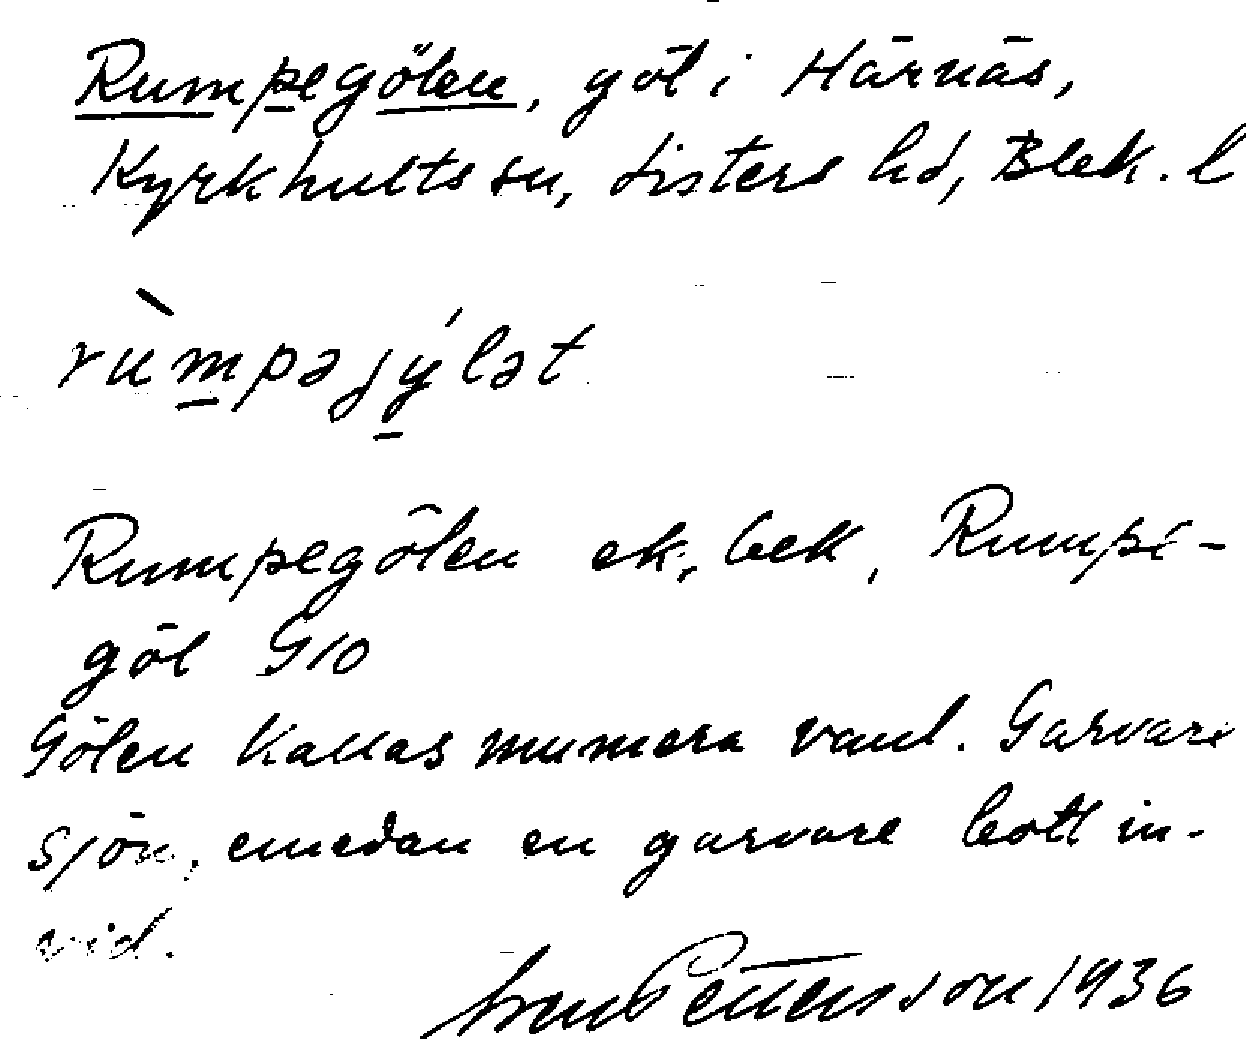 Rumpegölen, göl i Härnäs,
Kyrkhults sn, Listers hd, Blek. l
rùmpəjýlət
Rumpegölen ek, bek, Rumpe-
göl G10
Gölen kallas numera vanl. Garvare
sjön, emedan en garvare bott in-
vid.
Pettersson 1936